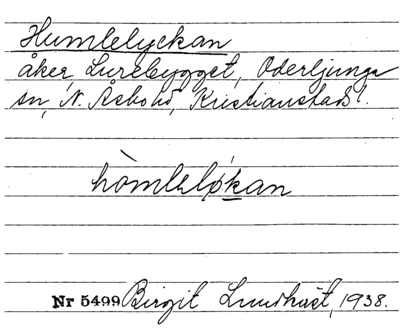 Humlelyckan
åker, Lårebygget, Oderljunga
sn, N. Åsbo hd, Kristianstads l.
hòmleløkan
Nr 5499 Birgit Lundkvist, 1938.